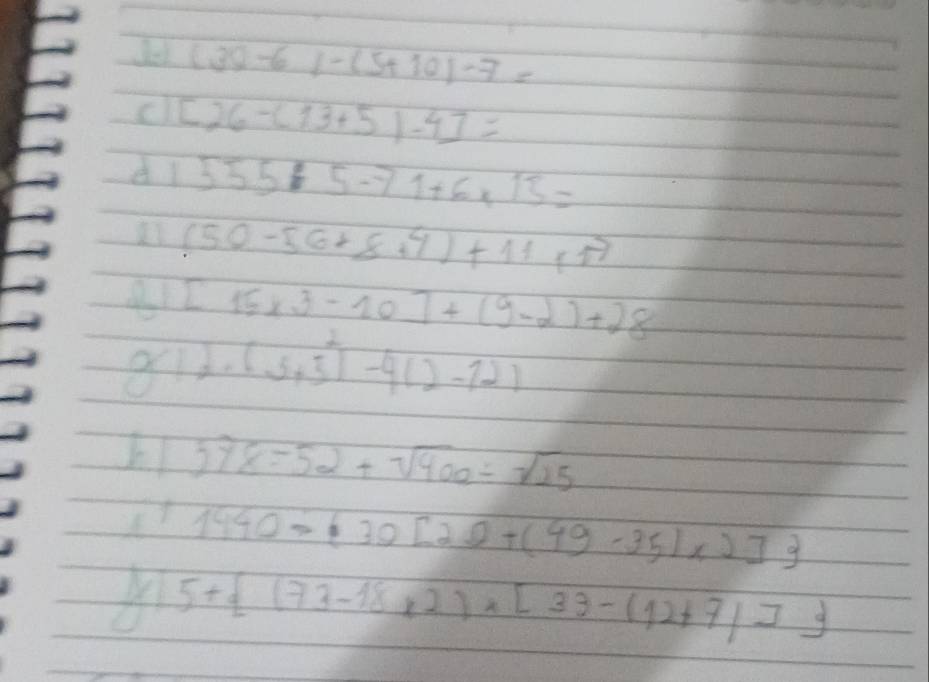 b) (30-6)-(5+10)-7=
c) [26-(13+5)-4]=
d) 555÷5-71+6×15=
(50-56+8.4)+11
[15×3-10]+(9-2)+28
g) 2.(5+5²)-4(2-12)
h) 378-52+√400÷√25
i) 1440÷{30[20+(49-35)×2]}
5+{(73-18×2)×[33-(12+7)]}